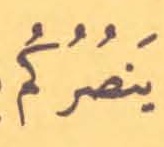 يَنصُرُكُم